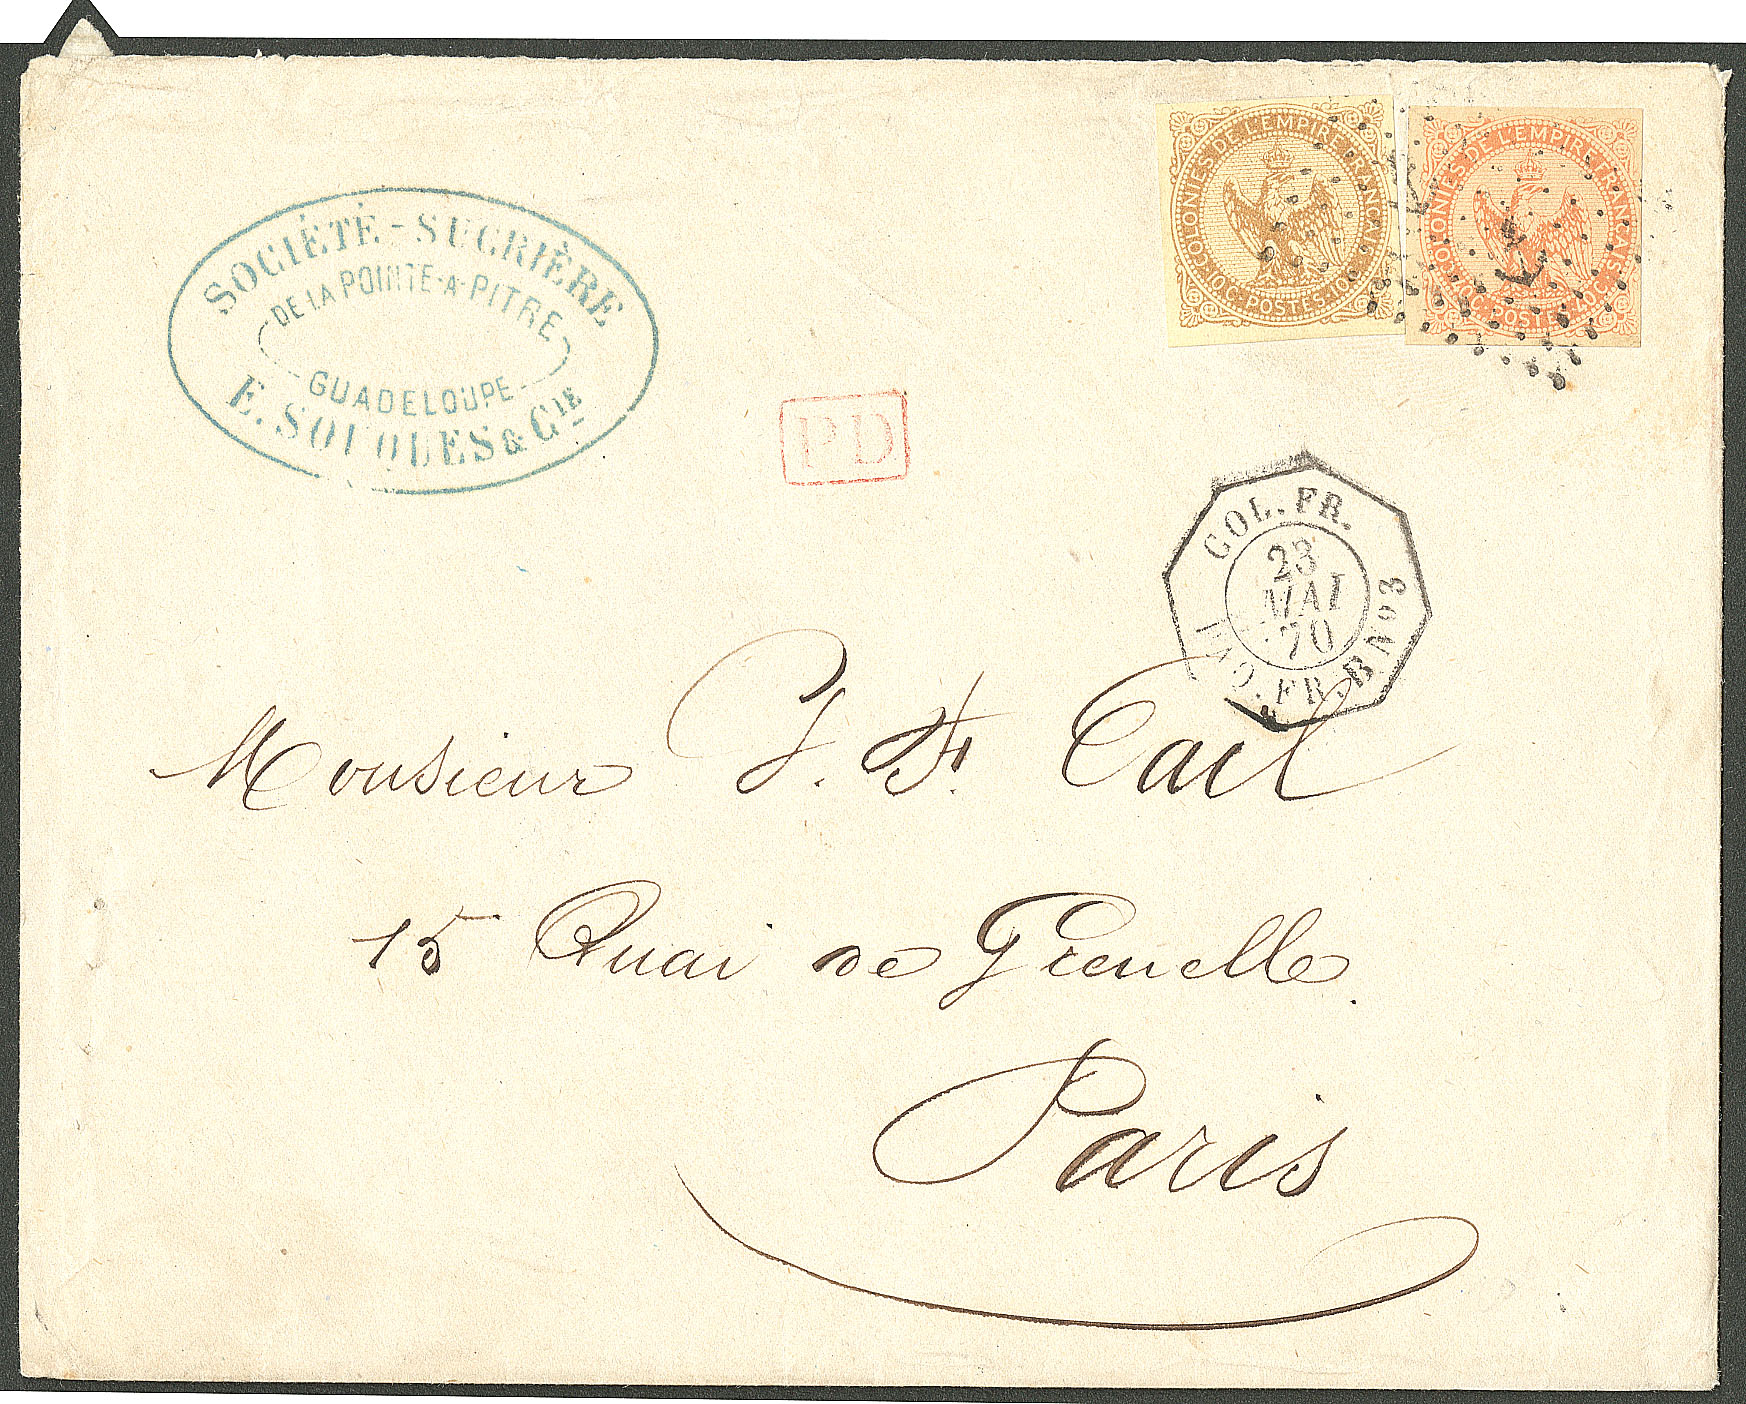 COLONIES DE L'EMPIRE FRANÇAIS
10C. POSTES 10C.
COLONIES DE L'EMPIRE FRANÇAIS
40C. POSTES 40C.
SOCIÉTÉ-SUCRIÈRE
DE LA POINTE-A-PITRE
GUADELOUPE
E. SOUQUES & CIE
PD
COL. FR.
23
MAI
70
PAQ. FR. B No 3
Monsieur J. F. Cail
15 Quai de Grenelle.
Paris